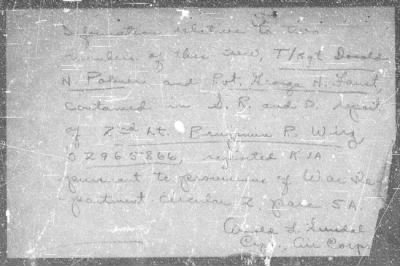 Information relative to two
members of this crew, T/Sgt Donald
N Palmer and Pvt. George H.
contained in S. R. and D. report
of 2nd Lt. P. Wing
O 2965866, reported KIA
pursuant to provisions of War De
partment Circular 2 para 5A
Capt, Air Corps